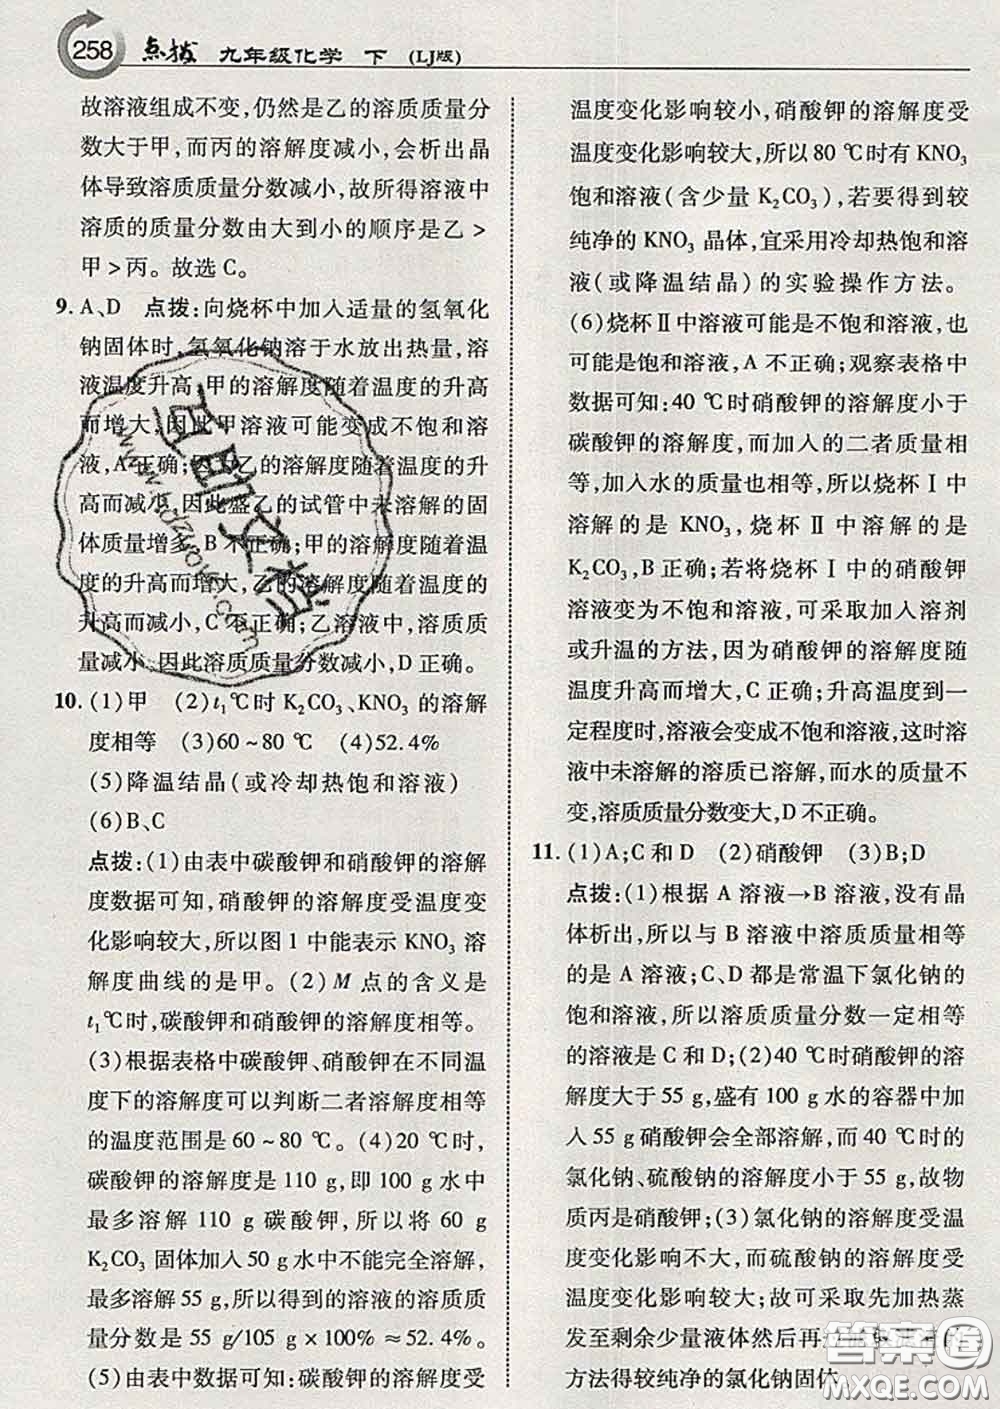 258 点拨 九年级化学 下 (LJ版)
故溶液组成不变,仍然是乙的溶质质量分
数大于甲,而丙的溶解度减小,会析出晶
体导致溶质质量分数减小,故所得溶液中
溶质的质量分数由大到小的顺序是乙>
甲>丙。故选C。
9. A、D 点拨:向烧杯中加入适量的氢氧化
钠固体时,氢氧化钠溶于水放出热量,溶
液温度升高,甲的溶解度随着温度的升高
而增大,因此甲溶液可能变成不饱和溶
液,A正确;因为乙的溶解度随着温度的升
高而减小,因此盛乙的试管中未溶解的固
体质量增多,B不正确;甲的溶解度随着温
度的升高而增大,乙的溶解度随着温度的
升高而减小,C不正确;乙溶液中,溶质质
量减小,因此溶质质量分数减小,D正确。
10. (1)甲 (2)t₁℃时K₂CO₃、KNO₃的溶解
度相等 (3)60~80 ℃ (4)52.4%
(5)降温结晶(或冷却热饱和溶液)
(6)B、C
点拨:(1)由表中碳酸钾和硝酸钾的溶解
度数据可知,硝酸钾的溶解度受温度变
化影响较大,所以图1中能表示KNO₃溶
解度曲线的是甲。(2)M点的含义是
t₁℃时,碳酸钾和硝酸钾的溶解度相等。
(3)根据表格中碳酸钾、硝酸钾在不同温
度下的溶解度可以判断二者溶解度相等
的温度范围是60~80 ℃。(4)20 ℃时,
碳酸钾的溶解度是110 g,即100 g水中
最多溶解110 g碳酸钾,所以将60 g
K₂CO₃固体加入50 g水中不能完全溶解,
最多溶解55 g,所以得到的溶液的溶质质
量分数是55 g/105 g×100%≈52.4%。
(5)由表中碳酸钾、硝酸钾的溶解度受
温度变化影响较小,硝酸钾的溶解度受
温度变化影响较大,所以80 ℃时有KNO₃
饱和溶液(含少量K₂CO₃),若要得到较
纯净的KNO₃晶体,宜采用冷却热饱和溶
液(或降温结晶)的实验操作方法。
(6)烧杯Ⅱ中溶液可能是不饱和溶液,也
可能是饱和溶液,A不正确;观察表格中
数据可知:40 ℃时硝酸钾的溶解度小于
碳酸钾的溶解度,而加入的二者质量相
等,加入水的质量也相等,所以烧杯Ⅰ中
溶解的是KNO₃,烧杯Ⅱ中溶解的是
K₂CO₃,B正确;若将烧杯Ⅰ中的硝酸钾
溶液变为不饱和溶液,可采取加入溶剂
或升温的方法,因为硝酸钾的溶解度随
温度升高而增大,C正确;升高温度到一
定程度时,溶液会变成不饱和溶液,这时溶
液中未溶解的溶质已溶解,而水的质量不
变,溶质质量分数变大,D不正确。
11. (1)A;C和D (2)硝酸钾 (3)B;D
点拨:(1)根据A溶液→B溶液,没有晶
体析出,所以与B溶液中溶质质量相等
的是A溶液;C、D都是常温下氯化钠的
饱和溶液,所以溶质质量分数一定相等
的溶液是C和D;(2)40 ℃时硝酸钾的溶
解度大于55 g,盛有100 g水的容器中加
入55 g硝酸钾会全部溶解,而40 ℃时的
氯化钠、硫酸钠的溶解度小于55 g,故物
质丙是硝酸钾;(3)氯化钠的溶解度受温
度变化影响不大,而硫酸钠的溶解度受
温度变化影响较大;故可采取先加热蒸
发至剩余少量液体然后再
方法得较纯净的氯化钠固体。
答案圈
MXQE.COM